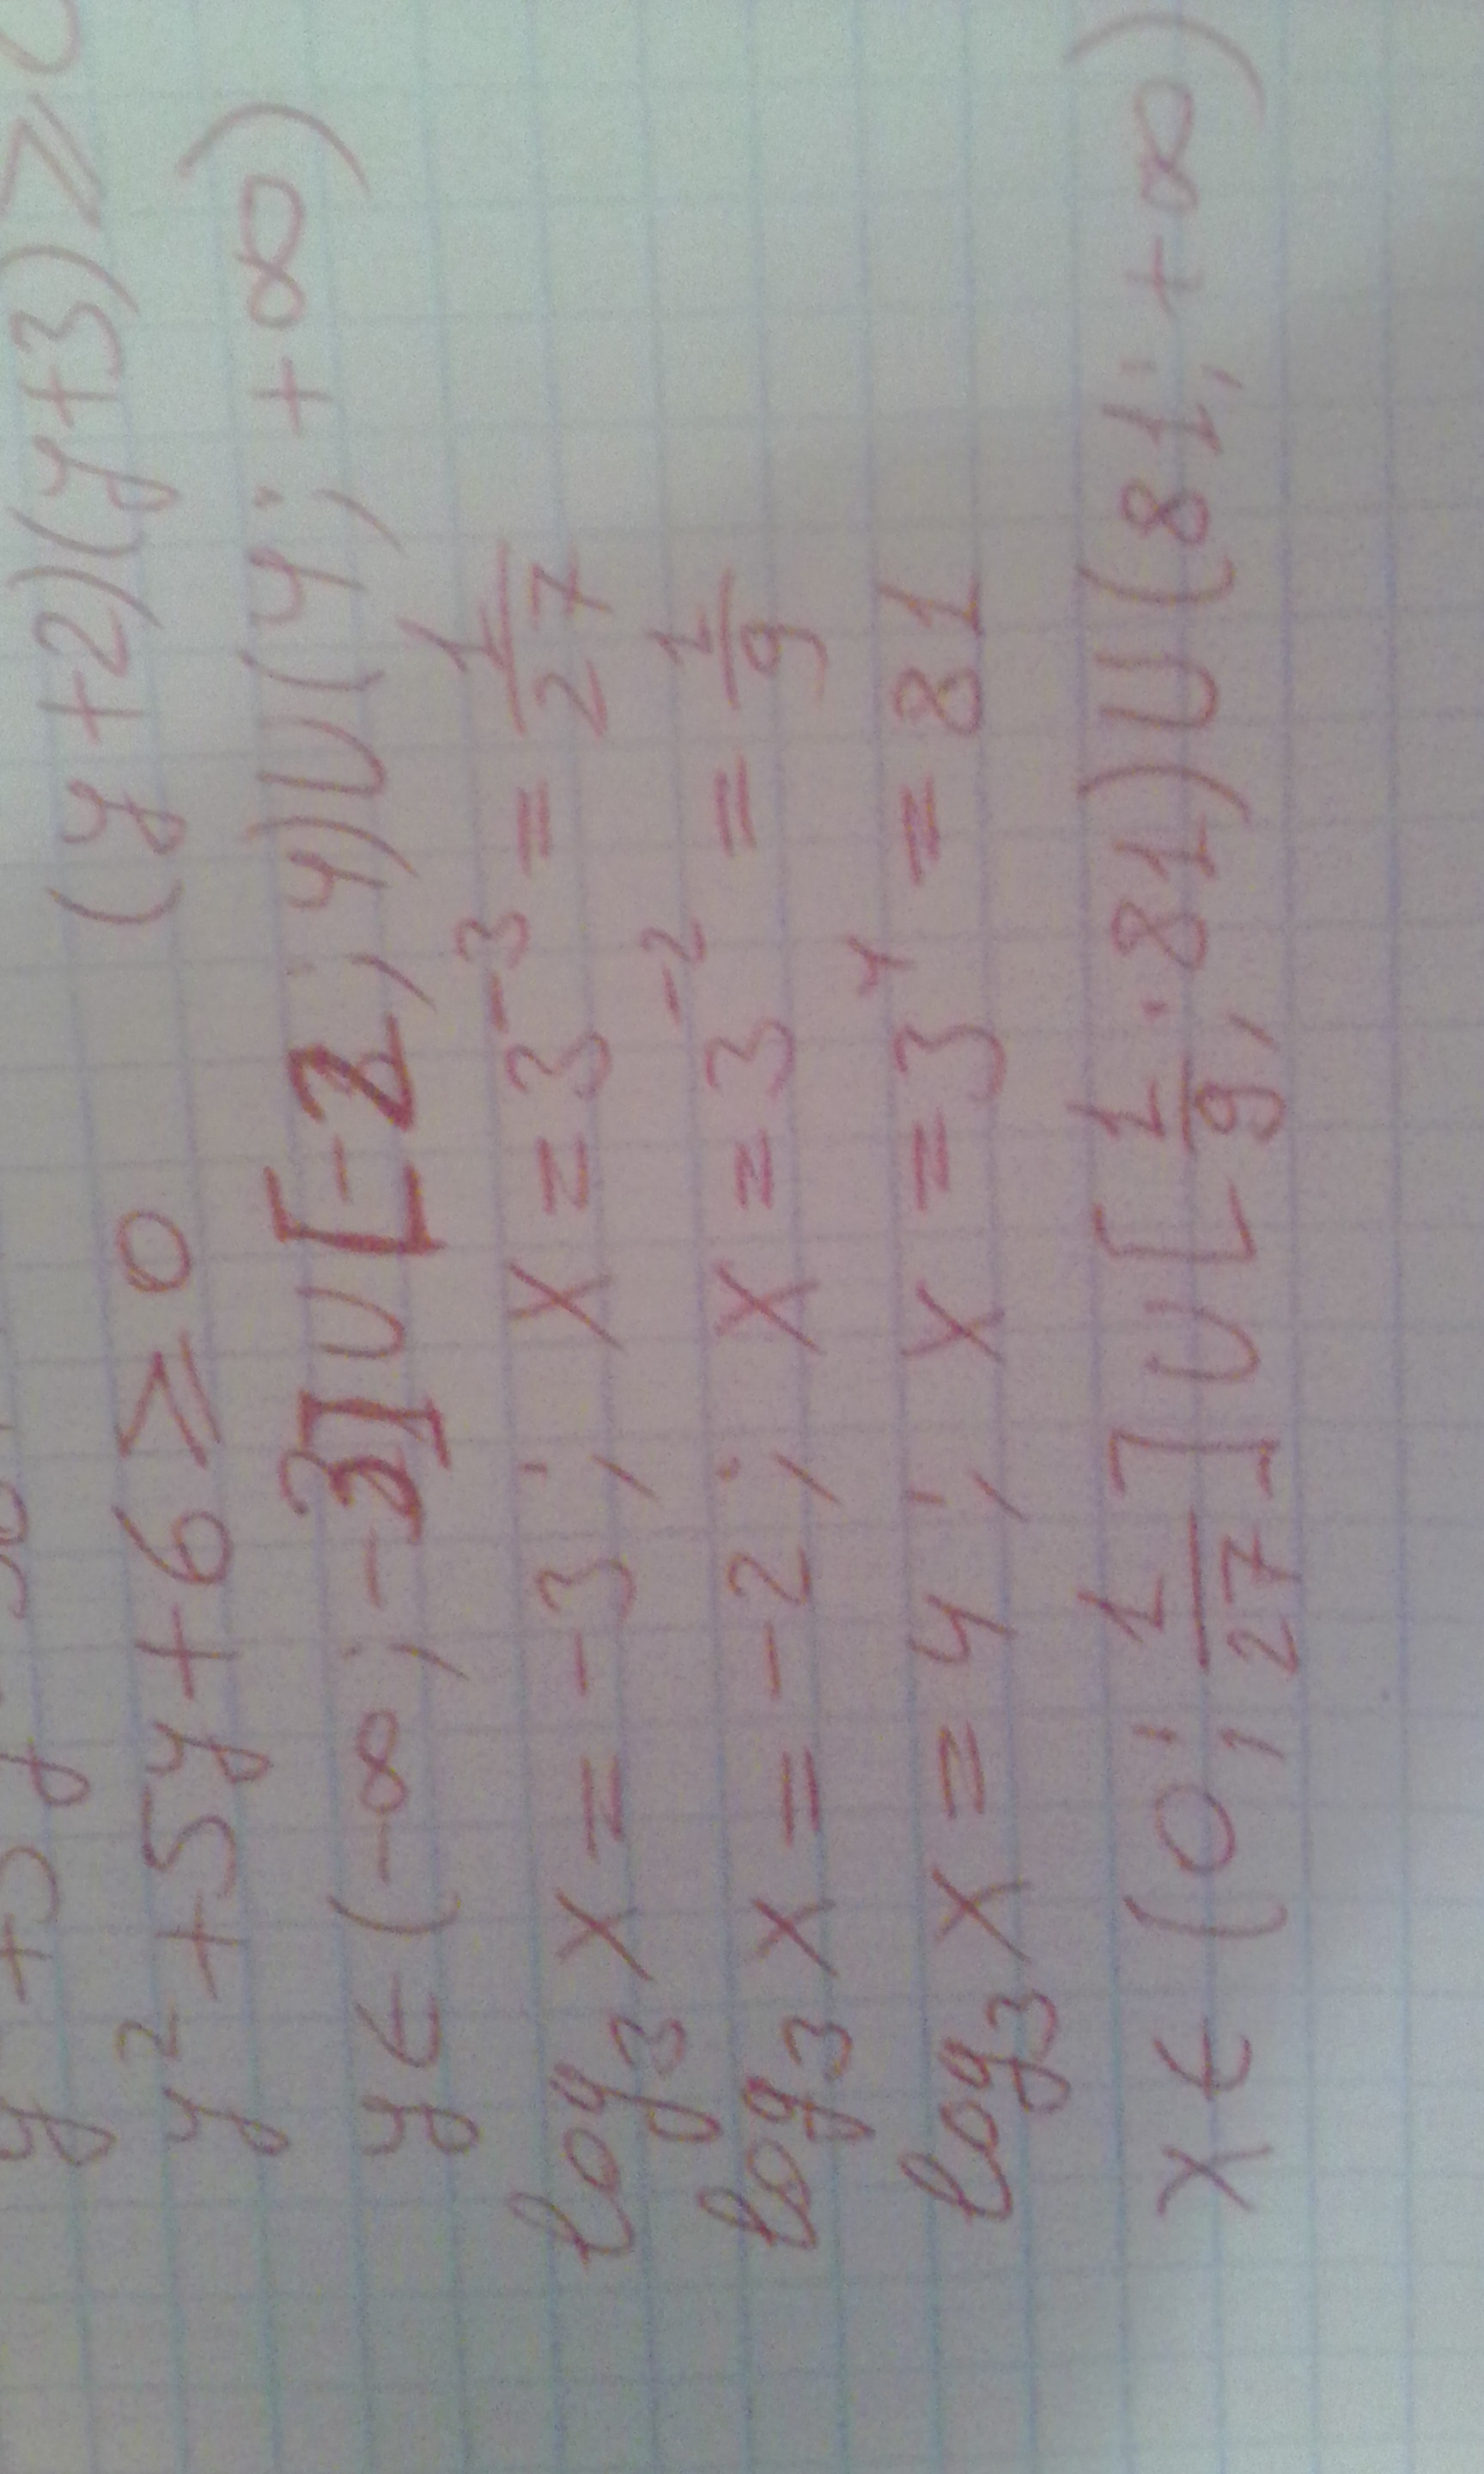 y² + 5y + 6 ≥ 0 (y + 2)(y + 3) ≥ 0
y ∈ (-∞; -3] ∪ [-2; 4) ∪ (4; +∞)
log₃ x = -3; x = 3⁻³ = 1/27
log₃ x = -2; x = 3⁻² = 1/9
log₃ x = 4; x = 3⁴ = 81
x ∈ (0; 1/27] ∪ [1/9; 81) ∪ (81; +∞)